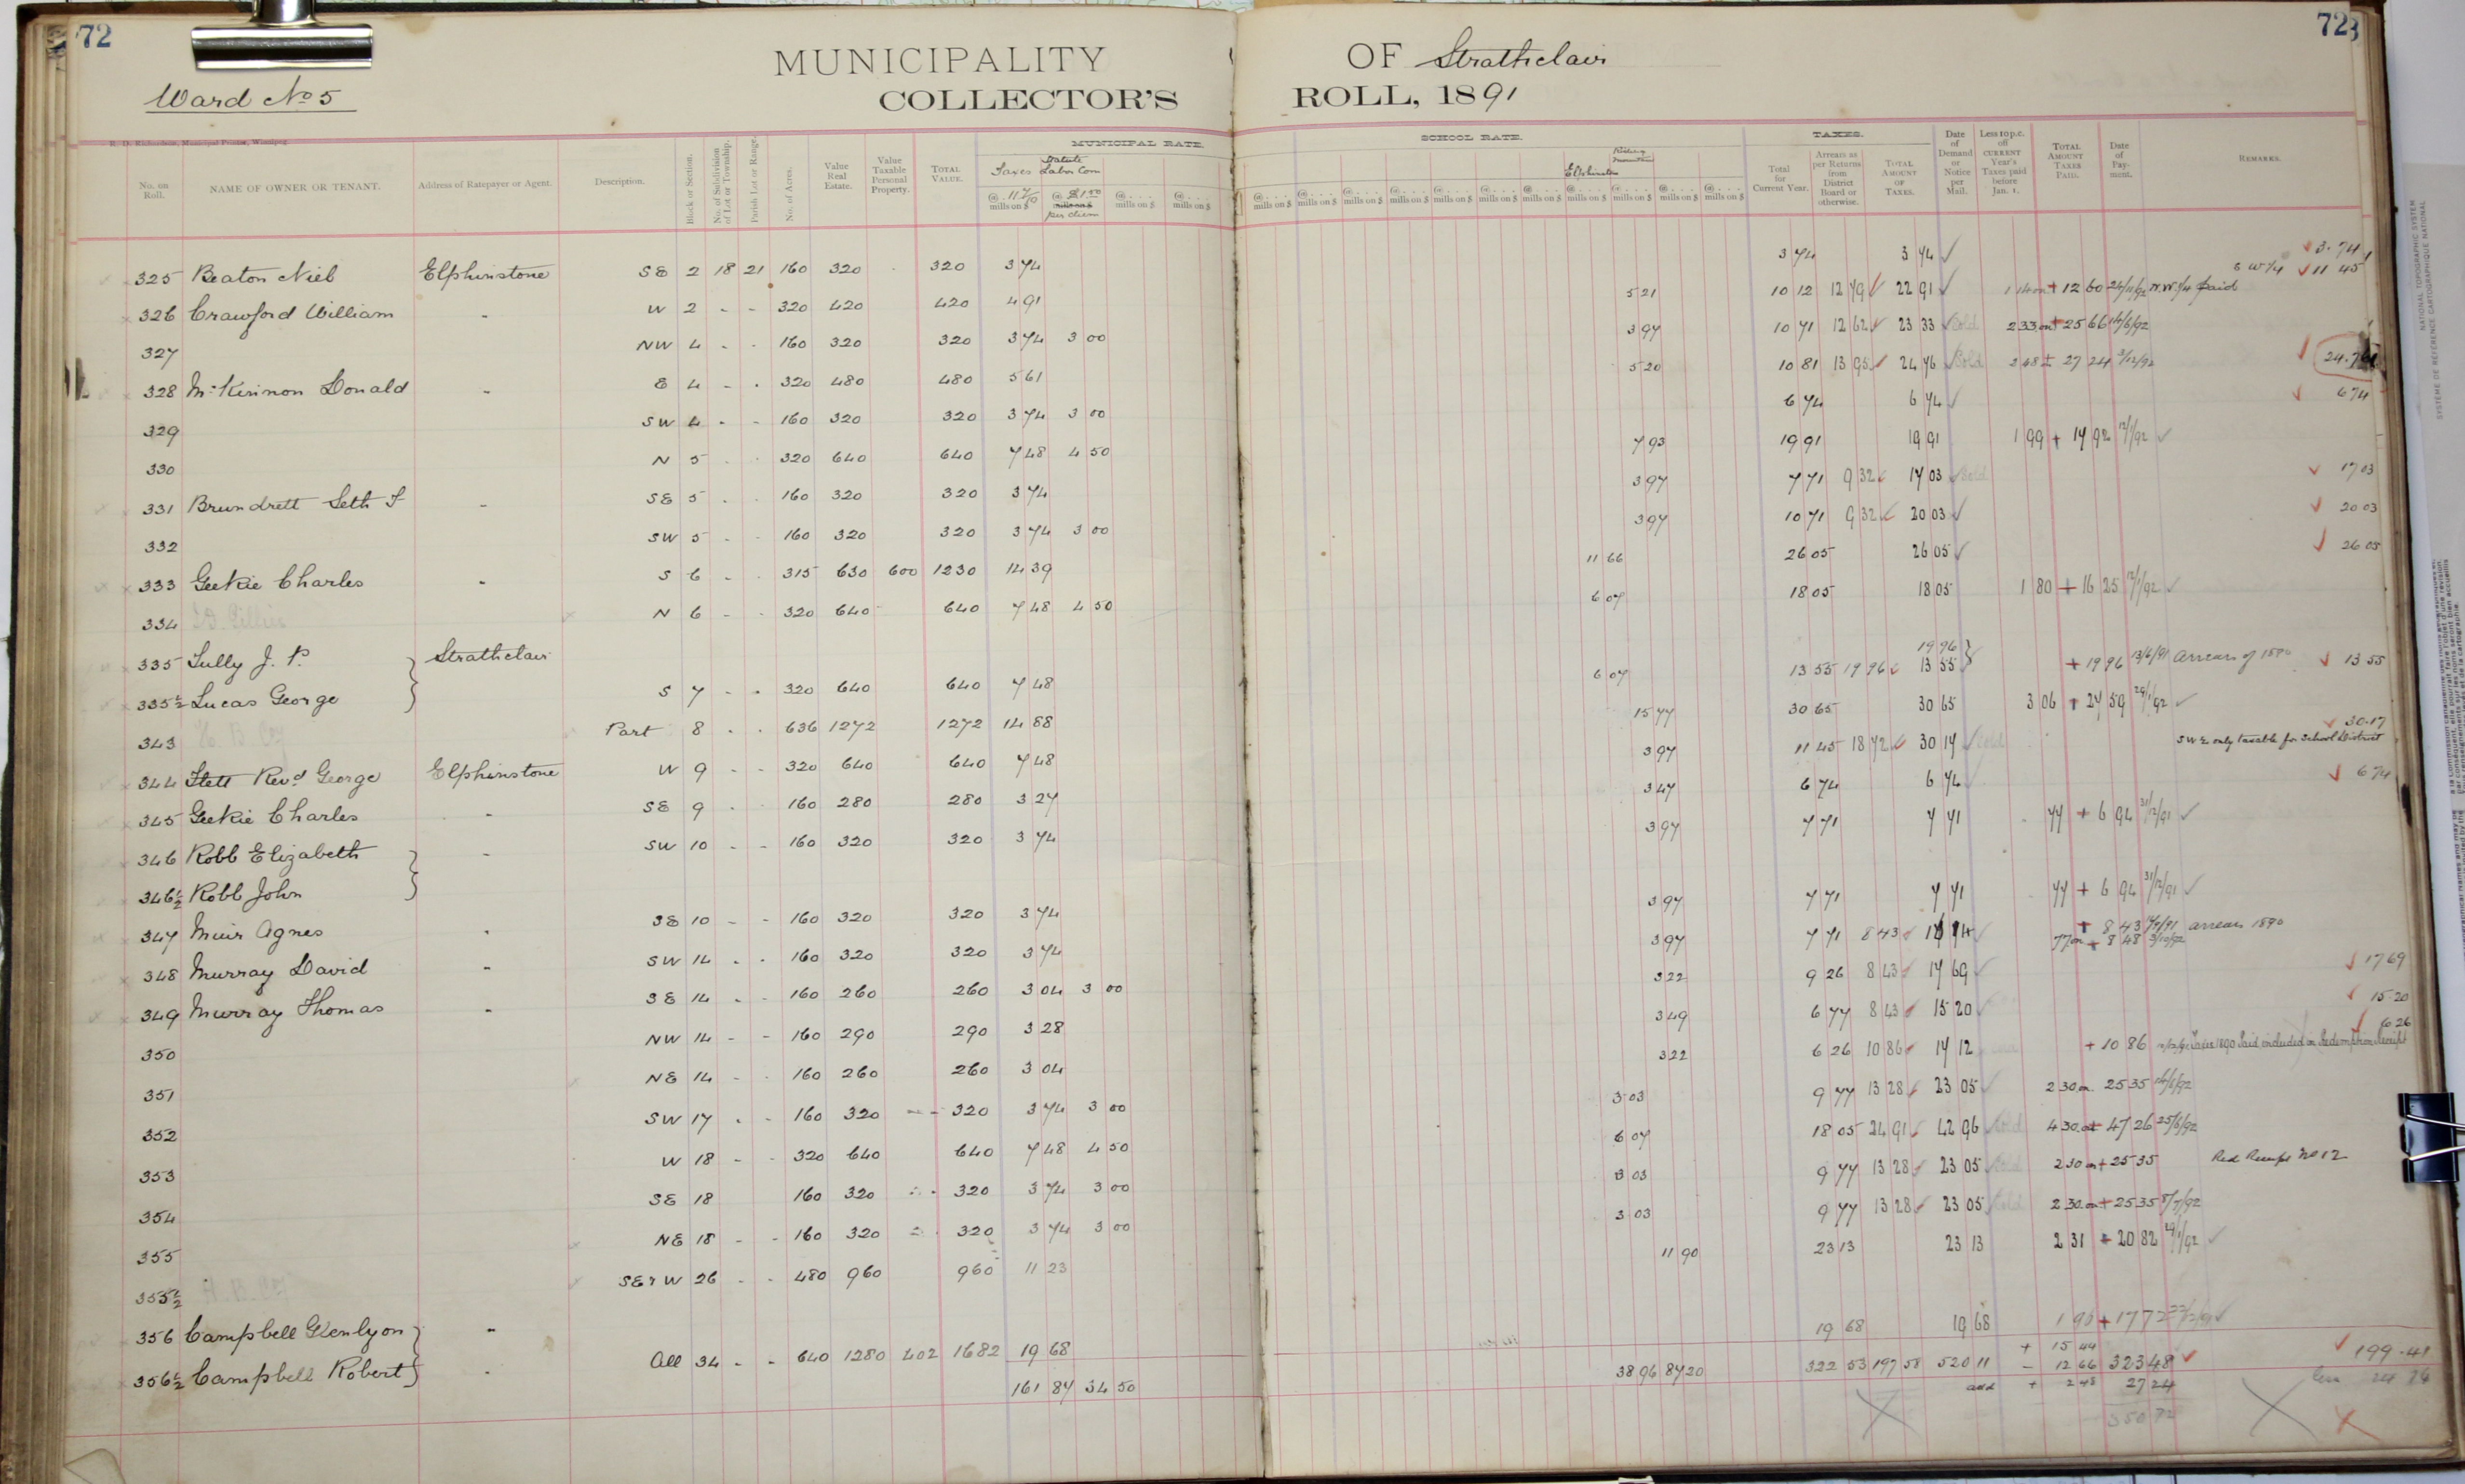 72
72
MUNICIPALITY OF Strathclair
Ward No 5
COLLECTOR'S ROLL, 1891
R. D. Richardson, Municipal Printer, Winnipeg.
MUNICIPAL RATE. SCHOOL RATE. TAXES.
No. on Roll. NAME OF OWNER OR TENANT. Address of Ratepayer or Agent. Description. Block or Section. No. of Subdivision of Lot or Township. Parish Lot or Range. No. of Acres. Value Real Estate. Value Taxable Personal Property. TOTAL VALUE. Taxes @ 11 7/10 mills on $ Statute Labor Com @ $1.50 mills on $ per diem @ . . . mills on $ @ . . . mills on $
@ . . . mills on $ @ . . . mills on $ @ . . . mills on $ @ . . . mills on $ @ . . . mills on $ @ . . . mills on $ @ . . . mills on $ Elphinstone @ . . . mills on $ Riding Mountain @ . . . mills on $ @ . . . mills on $ @ . . . mills on $ Total for Current Year. Arrears as per Returns from District Board or otherwise. TOTAL AMOUNT OF TAXES. Date of Demand or Notice per Mail. Less 10 p.c. off CURRENT Year's Taxes paid before Jan. 1. TOTAL AMOUNT TAXES PAID. Date of Payment. REMARKS.
325 Beaton Niel Elphinstone SE 2 18 21 160 320 320 3 74 3 74 3 74 ✓ ✓ 3.74
326 Crawford William " W 2 - - 320 420 420 4 91 5 21 10 12 12 79 ✓ 22 91 ✓ 1 14 on + 12 60 24/11/92 N.W.1/4 paid S W 1/4 ✓ 11 45
327 NW 4 - - 160 320 320 3 74 3 00 3 97 10 71 12 62 ✓ 23 33 ✓ Sold 2 33 on + 25 66 14/6/92
328 McKinnon Donald " E 4 - - 320 480 480 5 61 5 20 10 81 13 95 ✓ 24 76 ✓ Sold 2 48 + 27 24 3/12/92 ✓ 24.76
329 SW 4 - - 160 320 320 3 74 3 00 6 74 6 74 ✓ ✓ 6 74
330 N 5 - - 320 640 640 7 48 4 50 7 93 19 91 19 91 1 99 + 17 92 12/1/92 ✓
331 Brundrett Seth T " SE 5 - - 160 320 320 3 74 3 97 7 71 9 32 ✓ 17 03 ✓ Sold ✓ 17 03
332 SW 5 - - 160 320 320 3 74 3 00 3 97 10 71 9 32 ✓ 20 03 ✓ ✓ 20 03
333 Geekie Charles " S 6 - - 315 630 600 1230 14 39 11 66 26 05 26 05 ✓ ✓ 26 05
334 N 6 - - 320 640 640 7 48 4 50 6 07 18 05 18 05 1 80 + 16 25 12/1/92 ✓
335 Tully J. P. } Strathclair 19 96 }
335½ Lucas George S 7 - - 320 640 640 7 48 6 07 13 55 19 96 ✓ 13 55 + 19 96 13/6/91 arrears of 1890 ✓ 13 55
343 H. B. Coy Part 8 - - 636 1272 1272 14 88 15 77 30 65 30 65 3 06 + 27 59 29/1/92 ✓
344 Flett Revd George Elphinstone W 9 - - 320 640 640 7 48 3 97 11 45 18 72 ✓ 30 17 ✓ Sold ✓ 30.17 SW¼ only taxable for School District
345 Geekie Charles " SE 9 - - 160 280 280 3 27 3 47 6 74 6 74 ✓ ✓ 6 74
346 Robb Elizabeth } " SW 10 - - 160 320 320 3 74 3 97 7 71 7 71 77 + 6 94 31/12/91 ✓
346½ Robb John
347 Muir Agnes " SE 10 - - 160 320 320 3 74 3 97 7 71 7 71 77 + 6 94 31/12/91 ✓
348 Murray David " SW 14 - - 160 320 320 3 74 3 97 7 71 8 43 ✓ 16 14 ✓ + 8 43 arrears 1890 77 on + 8 48 3/10/92
349 Murray Thomas " SE 14 - - 160 260 260 3 04 3 00 3 22 9 26 8 43 ✓ 17 69 ✓ ✓ 17 69
350 NW 14 - - 160 290 290 3 28 3 49 6 77 8 43 ✓ 15 20 ✓ ✓ 15.20
351 NE 14 - - 160 260 260 3 04 3 22 6 26 10 86 ✓ 17 12 + 10 86 Taxes 1890 Paid included in Redemption Receipt ✓ 6 26
352 SW 17 - - 160 320 320 3 74 3 00 3 03 9 77 13 28 ✓ 23 05 ✓ 2 30 on 25 35 14/6/92
353 W 18 - - 320 640 640 7 48 4 50 6 07 18 05 24 91 ✓ 42 96 Sold 4 30 on + 47 26 25/6/92
354 SE 18 160 320 320 3 74 3 00 3 03 9 77 13 28 ✓ 23 05 ✓ Sold 2 30 on + 25 35 Red Receipt No 12
355 NE 18 - - 160 320 320 3 74 3 00 3 03 9 77 13 28 ✓ 23 05 ✓ Sold 2 30 on + 25 35 8/7/92
355½ H. B. Coy SE & W 26 - - 480 960 960 11 23 11 90 23 13 23 13 2 31 + 20 82 29/1/92 ✓
356 Campbell Glenlyon } "
356½ Campbell Robert } " All 34 - - 640 1280 402 1682 19 68 19 68 19 68 1 96 + 17 72 ✓
161 87 34 50 38 96 87 20 322 53 197 58 520 11 + 15 44 - 12 66 323 48 ✓ ✓ 199.41
add + 2 48 27 24 less 24 76
350 72